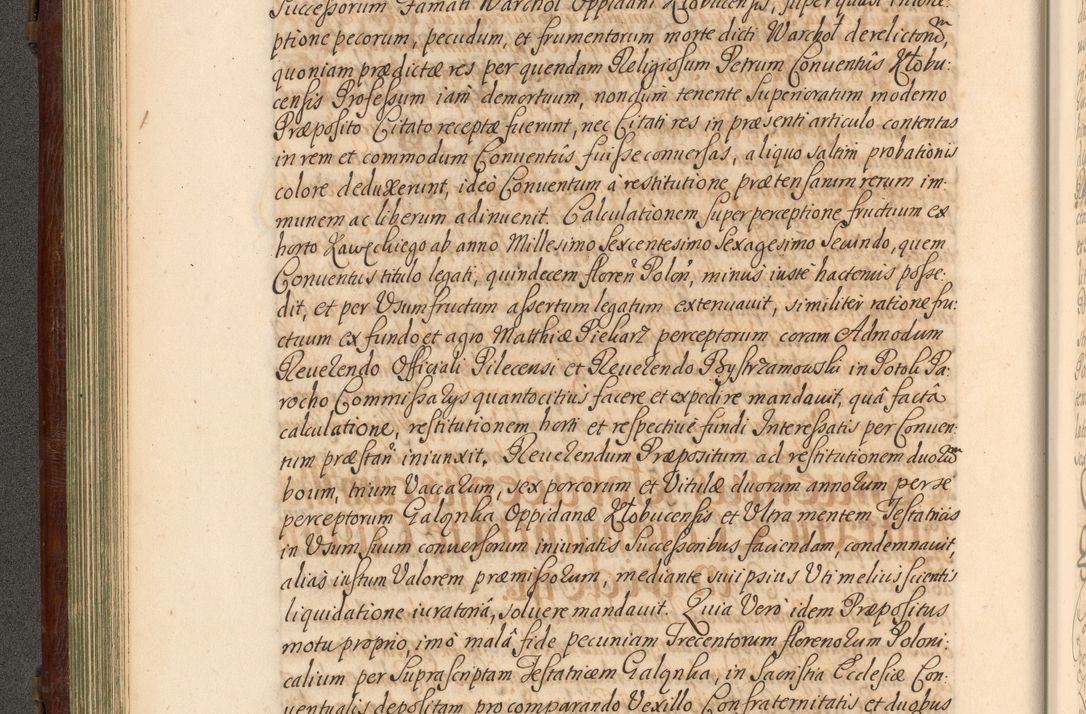 Successorum Famati Warchoł Oppidani Kłobucensis, super quasi interce:
ptione pecorum, pecudum, et frumentorum morte dicti Warchoł derelictorũ,
quoniam prædictæ res per quendam Religiosum Petrum Conventûs Kłobu:
censis Professum iam demortuum, nondum tenente Superioratum moderno
Præposito Citato receptæ fuerunt, nec Citati res in præsenti articulo contentas
in rem et commodum Conventûs fuisse conversas, aliquo saltim probationis
colore deduxerunt, ideo Conventum à restitutione prætensarum rerum im-
munem ac liberum adinvenit. Calculationem super perceptione fructuum ex
horto Rawęckiego ab anno Millesimo Sexcentesimo Sexagesimo Secundo, quem
Conventus titulo legati, quindecem floren̄ Polon̄, minus iuste hactenus posse:
dit, et per Usumfructum assertum legatum extenuavit, similiter ratione fru:
ctuum ex fundo et agro Matthiæ Piekarz perceptorum coram Admodum
Reverendo Officiali Pilecensi et Reverendo Bystrzamowski in Potok Pa:
rocho Commissarys quantocitius facere et expedire mandavit, quâ factâ
calculatione, restitutionem horti et respective fundi Interessatis per Conven:
tum præstan̄ iniunxit. Reverendum Præpositum ad restitutionem duorũ
boum, trium Vaccarum, sex porcorum et Vitulæ duorum annorum per se
perceptorum Galąnka Oppidanæ Kłobucensis et Ultra mentem Testatricis
in Usum suum conversorum iniuriatis Successoribus faciendam, condemnavit,
alias iustum Valorem præmissorum, mediante sui ipsius Uti melius scientis
liquidatione iuratoria, solvere mandavit. Quia Vero idem Præpositus
motu proprio, imò malâ fide pecuniam Trecentorum florenorum Poloni:
calium per Suprascriptam Testatricem Galąnka, in Sacristia Ecclesiæ Con:
ventualis depositam pro comparando Vexillo Confraternitatis et duobus